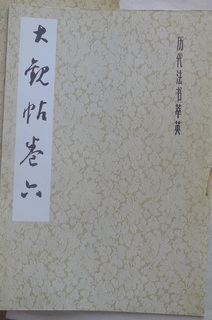 历代法书萃英
大觀帖卷六